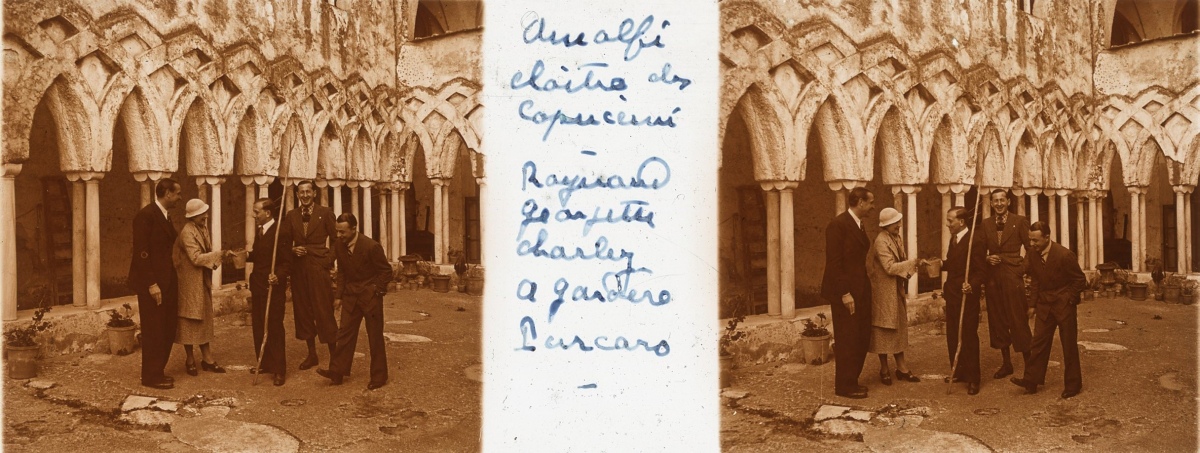 Amalfi
cloître des
Capucini
Raymond
georgette
charley
a gardere
Purcaro